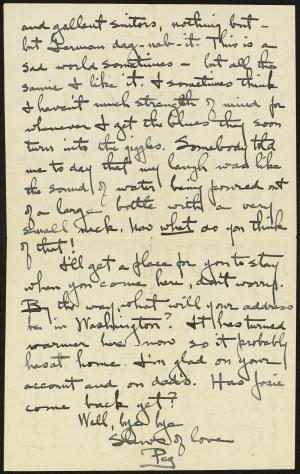 and gallant suitors, nothing but –
but German dag-nab-it. This is a
sad world sometimes – but all the
same I like it. I sometimes think
I haven't much strength of mind for
whenever I get the blues they soon
turn into the giggles. Somebody told
me to day that my laugh was like
the sound of water being poured out
of a large bottle with a very
small neck. Now what do you think
of that!
I'll get a place for you to stay
when you come here, don't worry.
By the way, what will your address
be in Washington? It has turned
warmer here now so it probably
has at home. I'm glad on your
account and on dad's. Has Josie
come back yet?
Well, bye bye
Slews of love
Peg